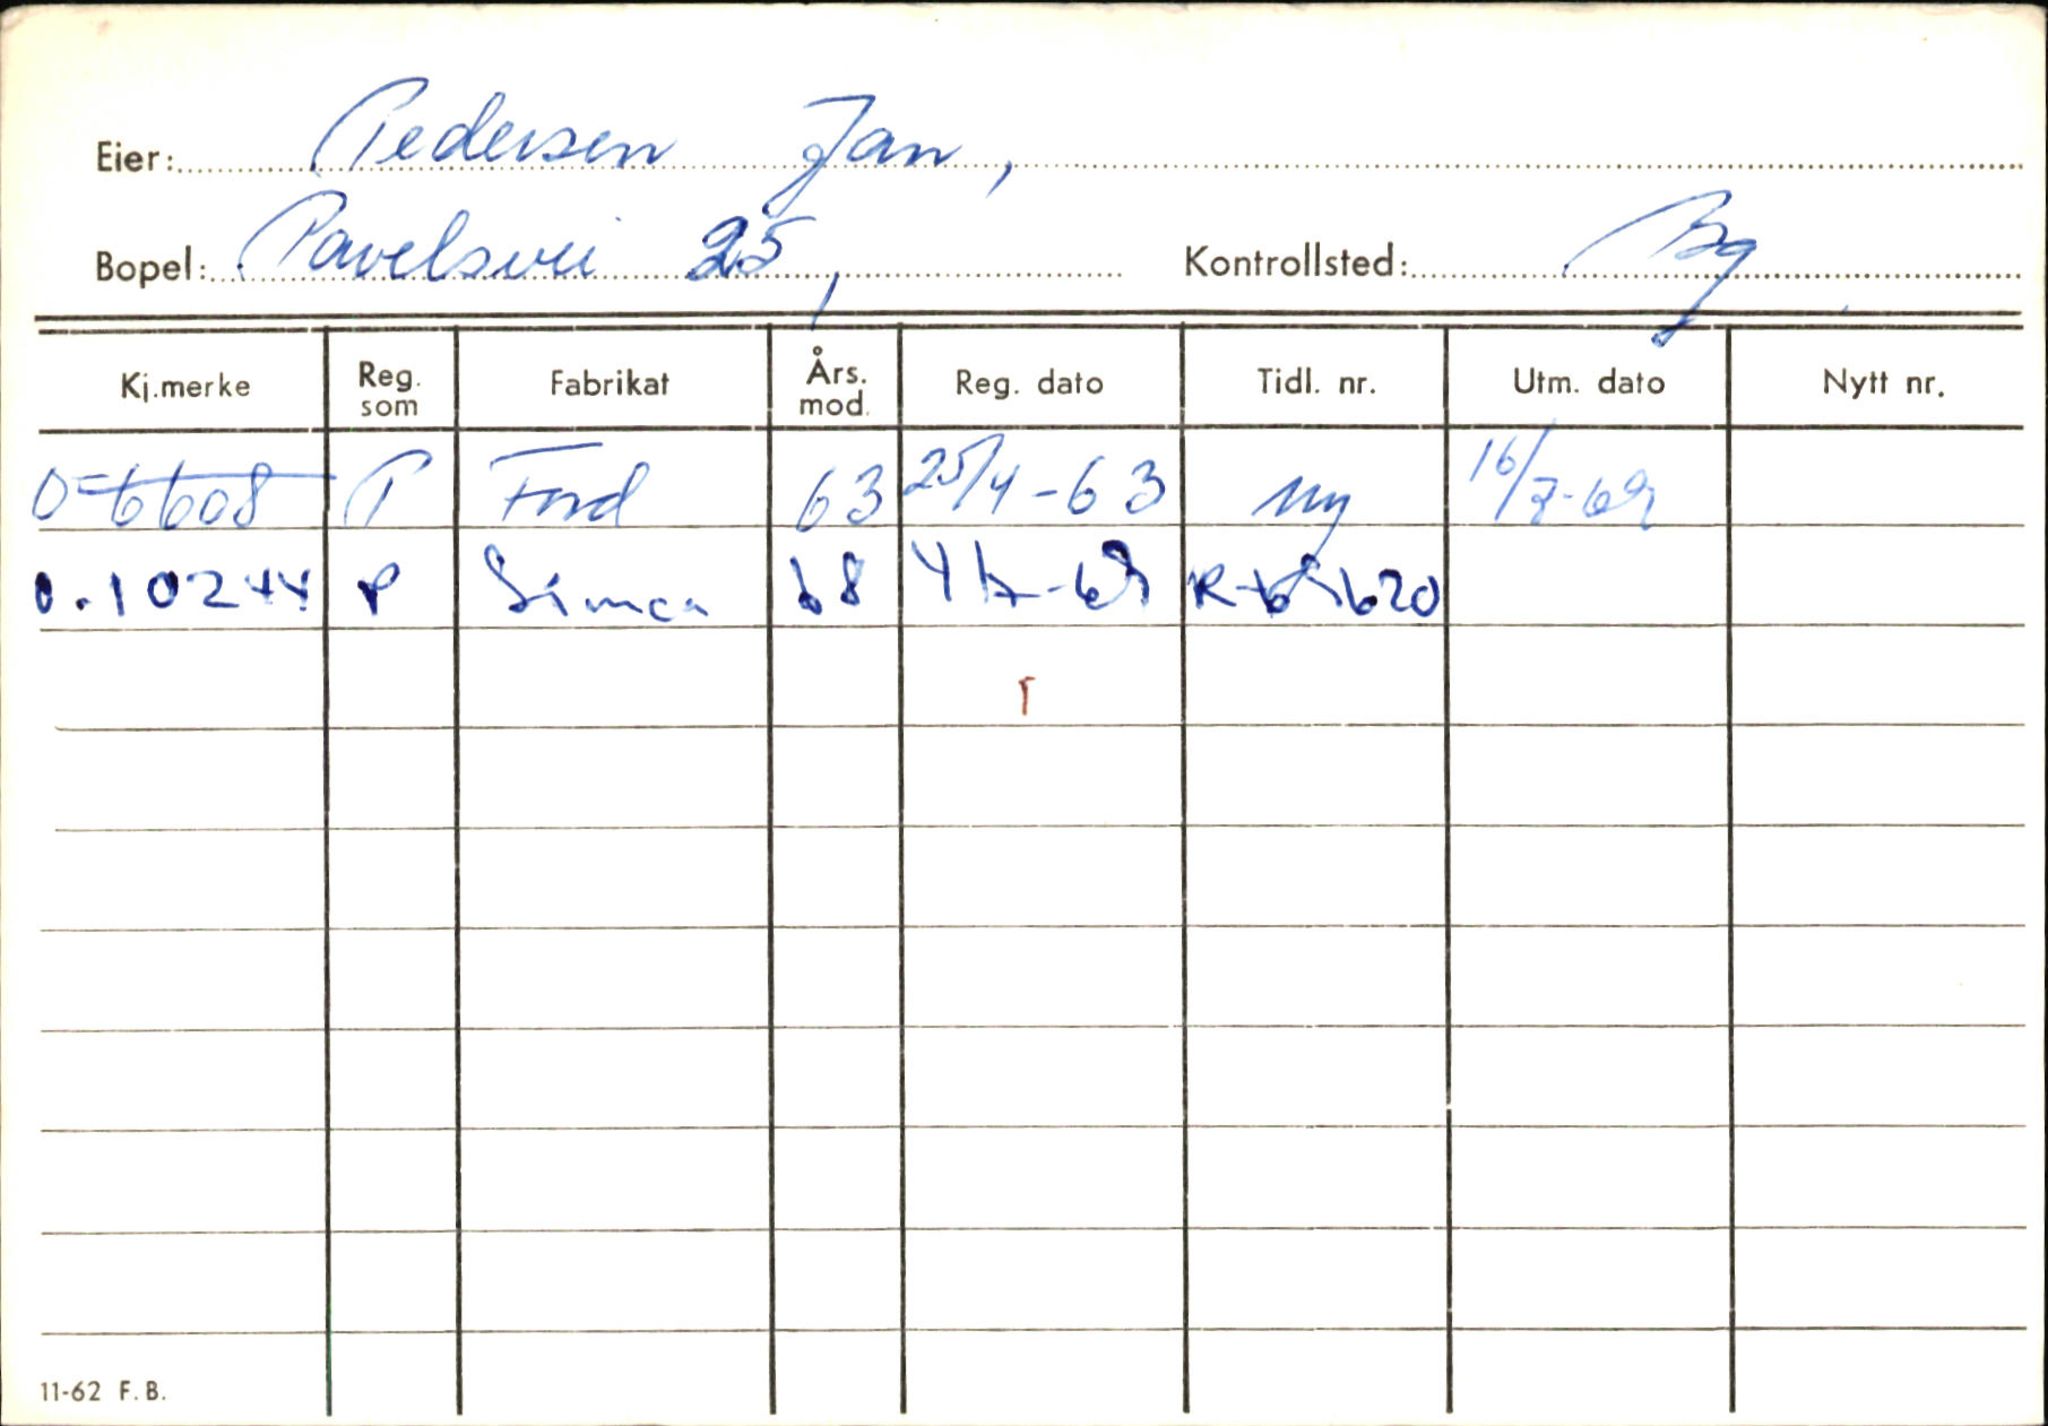 Eier: Pedersen Jan,
Bopel: Pavelsvei 25, Kontrollsted: Bg
Kj.merke Reg. som Fabrikat Års. mod. Reg. dato Tidl. nr. Utm. dato Nytt nr.
O-6608 P Ford 63 25/4-63 ny 16/7-69
O.10244 P Simca 68 4/7-69 R-69620
11-62 F.B.